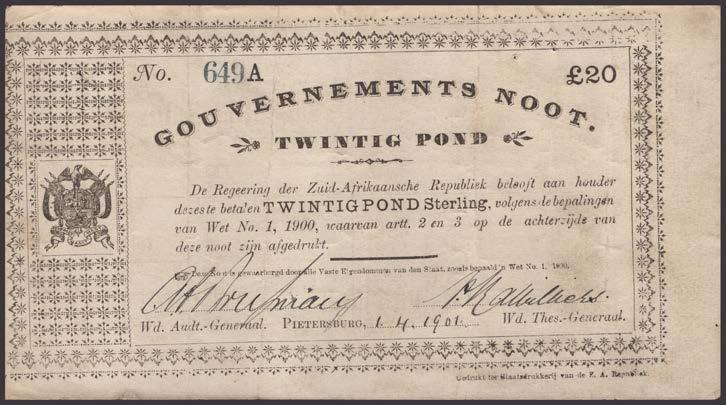 No. 649A £20
GOUVERNEMENTS NOOT.
TWINTIG POND
De Regeering der Zuid-Afrikaansche Republiek belooft aan houder
dezes te betalen TWINTIG POND Sterling, volgens de bepalingen
van Wet No. 1, 1900, waarvan artt. 2 en 3 op de achterzijde van
deze noot zijn afgedrukt.
gewaarborgd door alle Vaste Eigendommen van den Staat, zooals bepaald in Wet No. 1, 1900.
Wd. Audt.-Generaal. PIETERSBURG, 1. 4. 1901 Wd. Thes.-Generaal.
Gedrukt ter Staatsdrukkerij van de Z. A. Republiek.